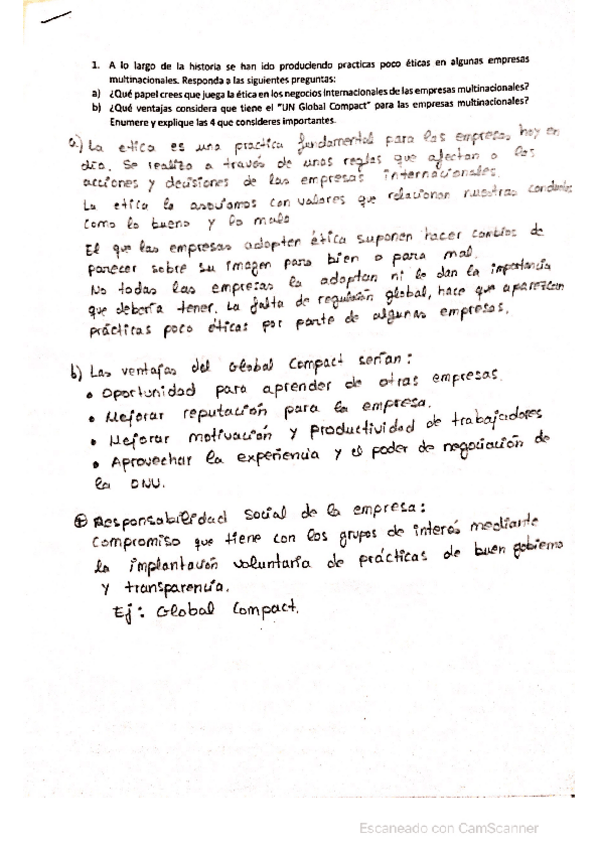 1. A lo largo de la historia se han ido produciendo practicas poco éticas en algunas empresas
multinacionales. Responda a las siguientes preguntas:
a) ¿Qué papel crees que juega la ética en los negocios internacionales de las empresas multinacionales?
b) ¿Qué ventajas considera que tiene el "UN Global Compact" para las empresas multinacionales?
Enumere y explique las 4 que consideres importantes.
a) La etica es una practica fundamental para las empresas hoy en
día. Se realiza a través de unas reglas que afectan a las
acciones y decisiones de las empresas internacionales.
La etica la asociamos con valores que relacionan nuestras conductas
como lo bueno y lo malo
El que las empresas adopten ética suponen hacer cambios de
parecer sobre su imagen para bien o para mal.
No todas las empresas la adoptan ni le dan la importancia
que debería tener. La falta de regulación global, hace que aparezcan
prácticas poco éticas por parte de algunas empresas.
b) Las ventajas del Global Compact serían:
• Oportunidad para aprender de otras empresas.
• Mejorar reputación para la empresa.
• Mejorar motivación y productividad de trabajadores
• Aprovechar la experiencia y el poder de negociación de
la ONU.
⊕ Responsabilidad Social de la empresa:
Compromiso que tiene con los grupos de interés mediante
la implantación voluntaria de prácticas de buen gobierno
y transparencia.
Ej: Global Compact.
Escaneado con CamScanner